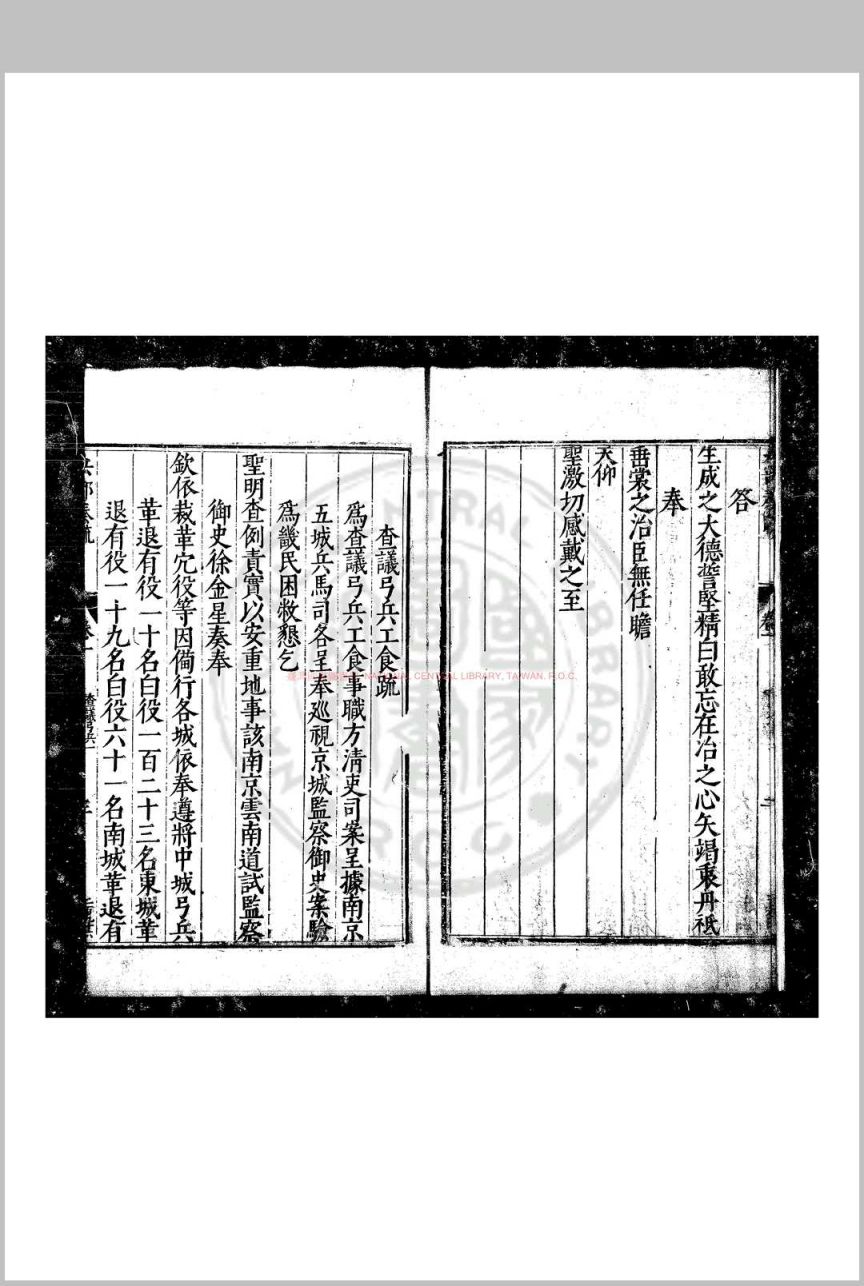 答
生成之大德誓堅精白敢忘在冶之心矢竭衷丹祗
奉
垂裳之治臣無任瞻
天仰
聖激切感戴之至
查議弓兵工食疏
爲查議弓兵工食事職方清吏司案呈據南京
五城兵馬司各呈奉巡視京城監察御史案驗
爲畿民困敝懇乞
聖明查例責實以安重地事該南京雲南道試監察
御史徐金星奏奉
欽依裁革冗役等因備行各城依奉遵將中城弓兵
革退有役一十名白役一百二十三名東城革
退有役一十九名白役六十一名南城革退有
兵部奏疏
卷一
查議弓兵
臺灣 NATIONAL CENTRAL LIBRARY, TAIWAN, R.O.C.
NATIONAL CENTRAL LIBRARY R.O.C.